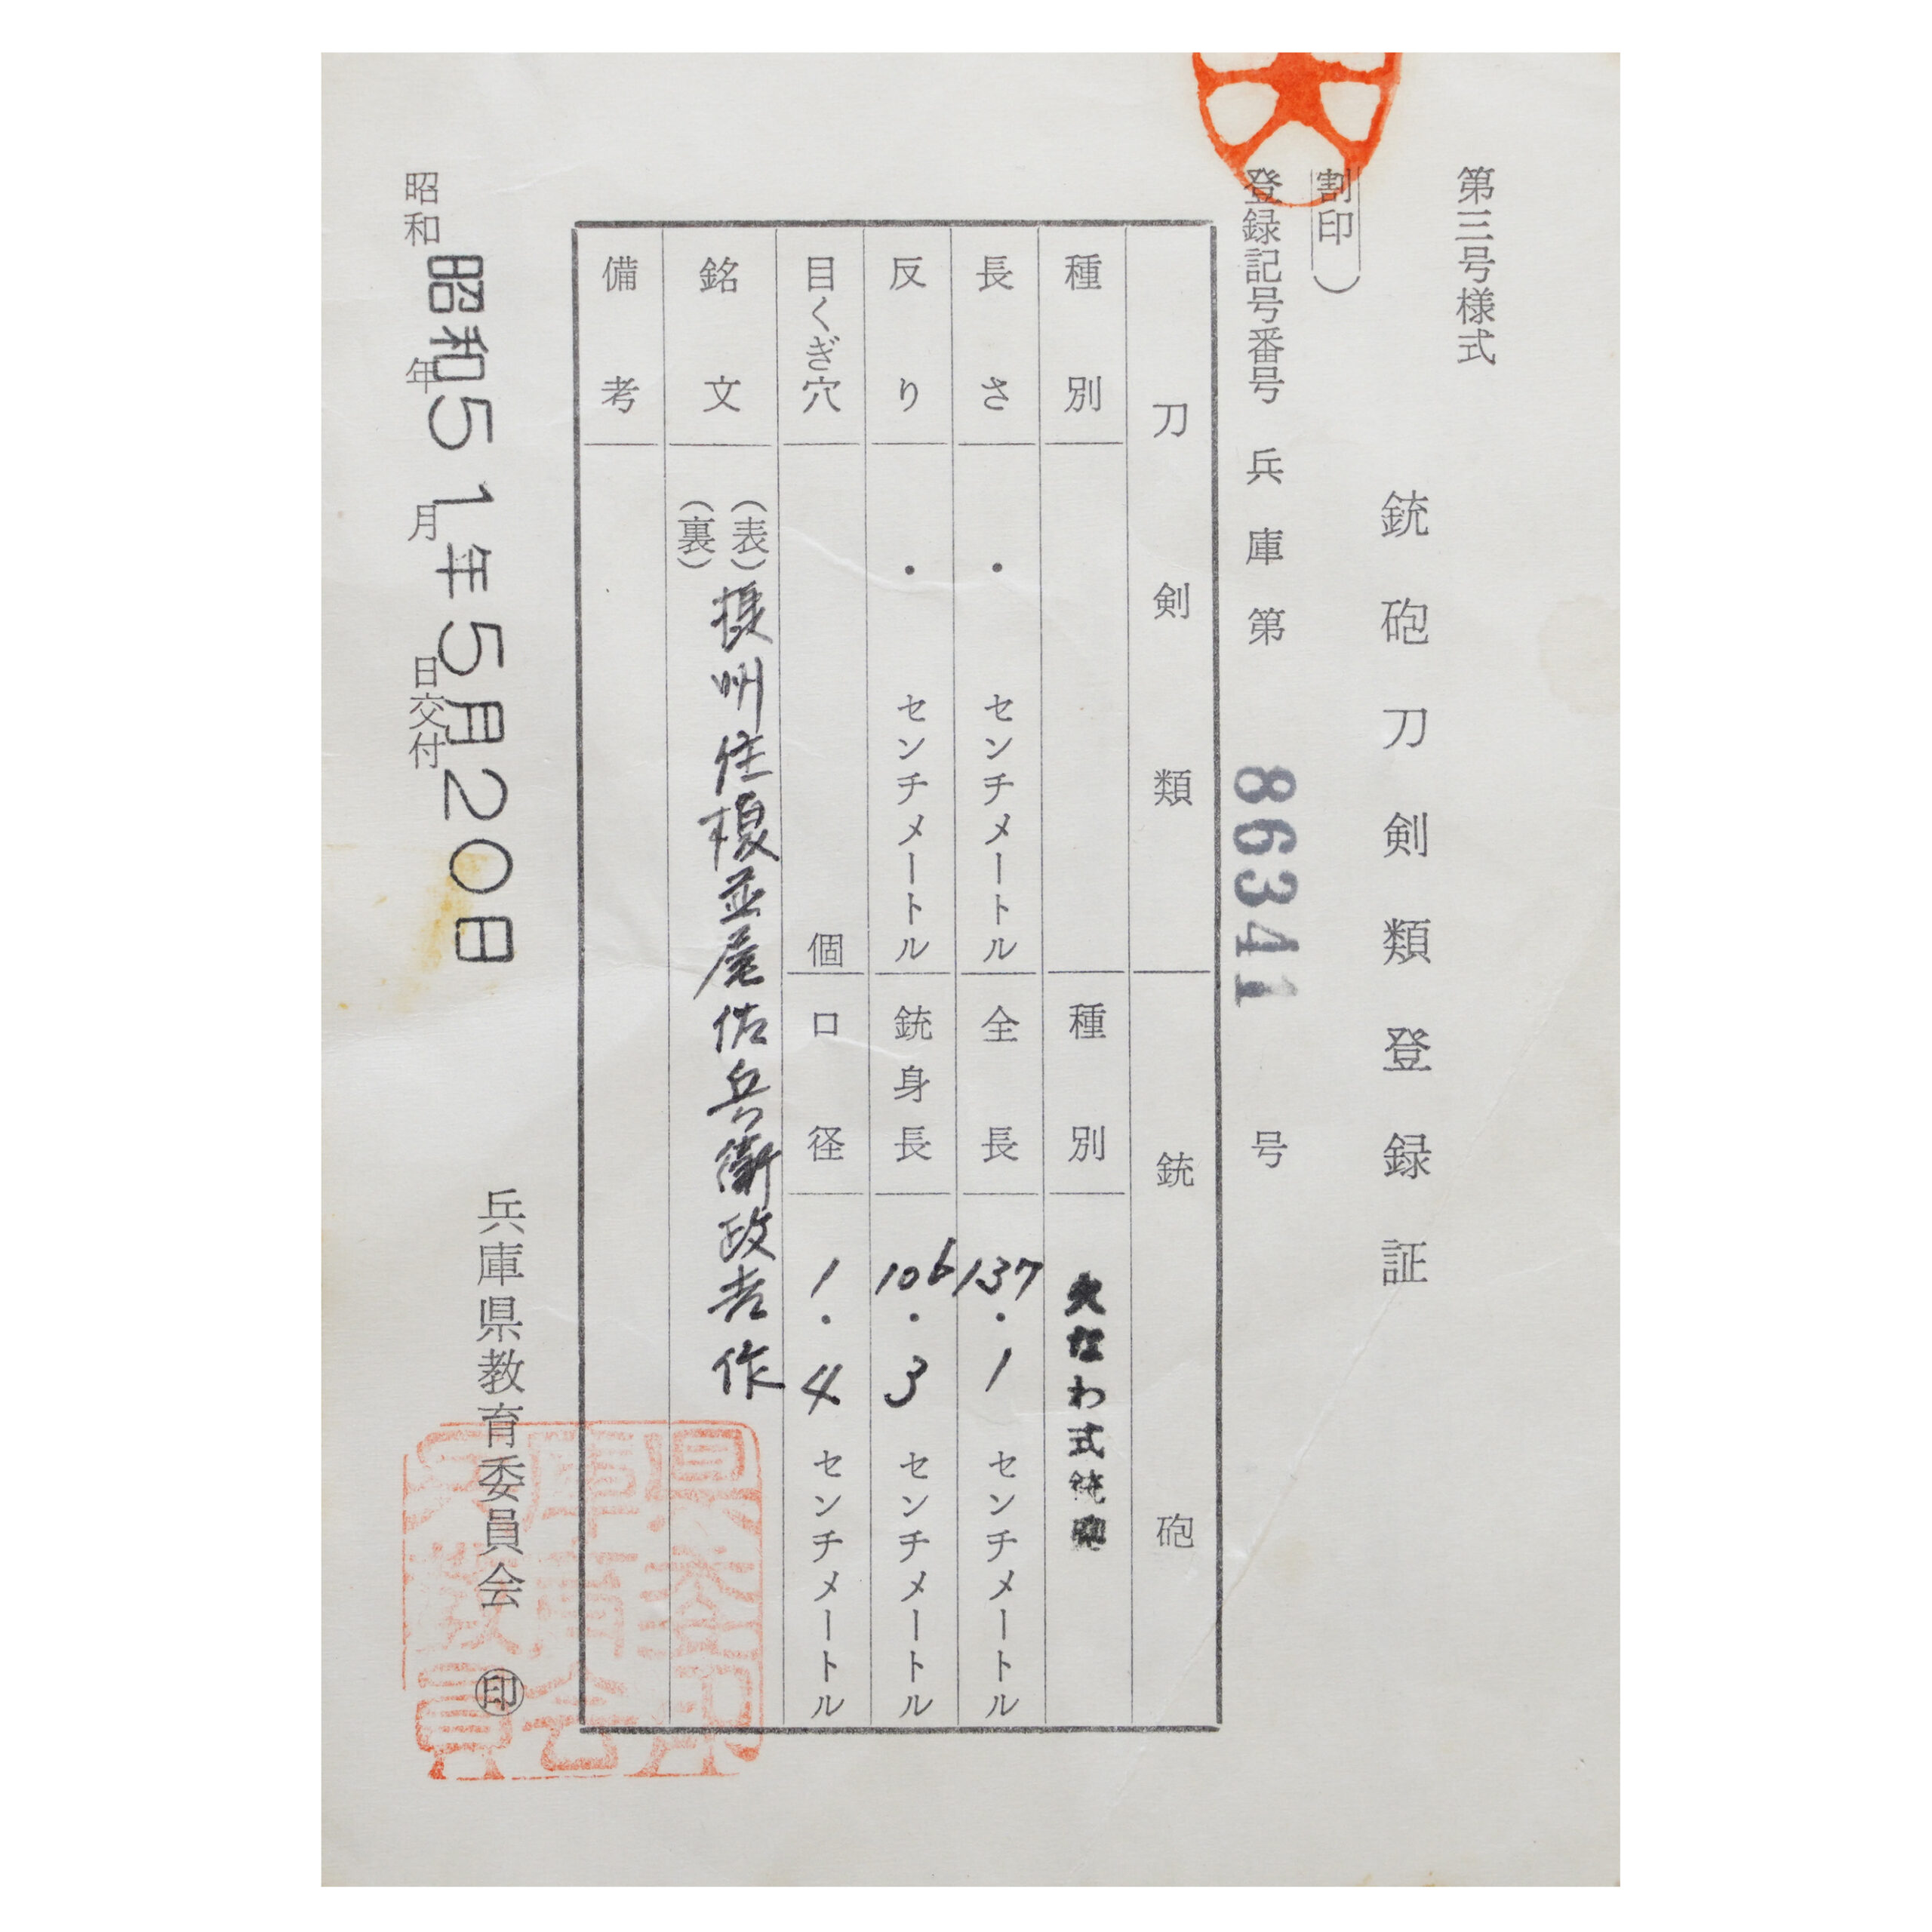 第三号様式
銃砲刀剣類登録証
(割印)
登録記号番号 兵庫第 86341 号
刀剣類 銃砲
種別 種別 火なわ式銃砲
長さ ・ センチメートル 全長 137・1 センチメートル
反り ・ センチメートル 銃身長 106・3 センチメートル
目くぎ穴 個 口径 1・4 センチメートル
銘文 (表) 摂州住榎並屋佐兵衛政吉作
(裏)
備考
昭和 年 月 日交付
昭和51年5月20日
兵庫県教育委員会 ㊞